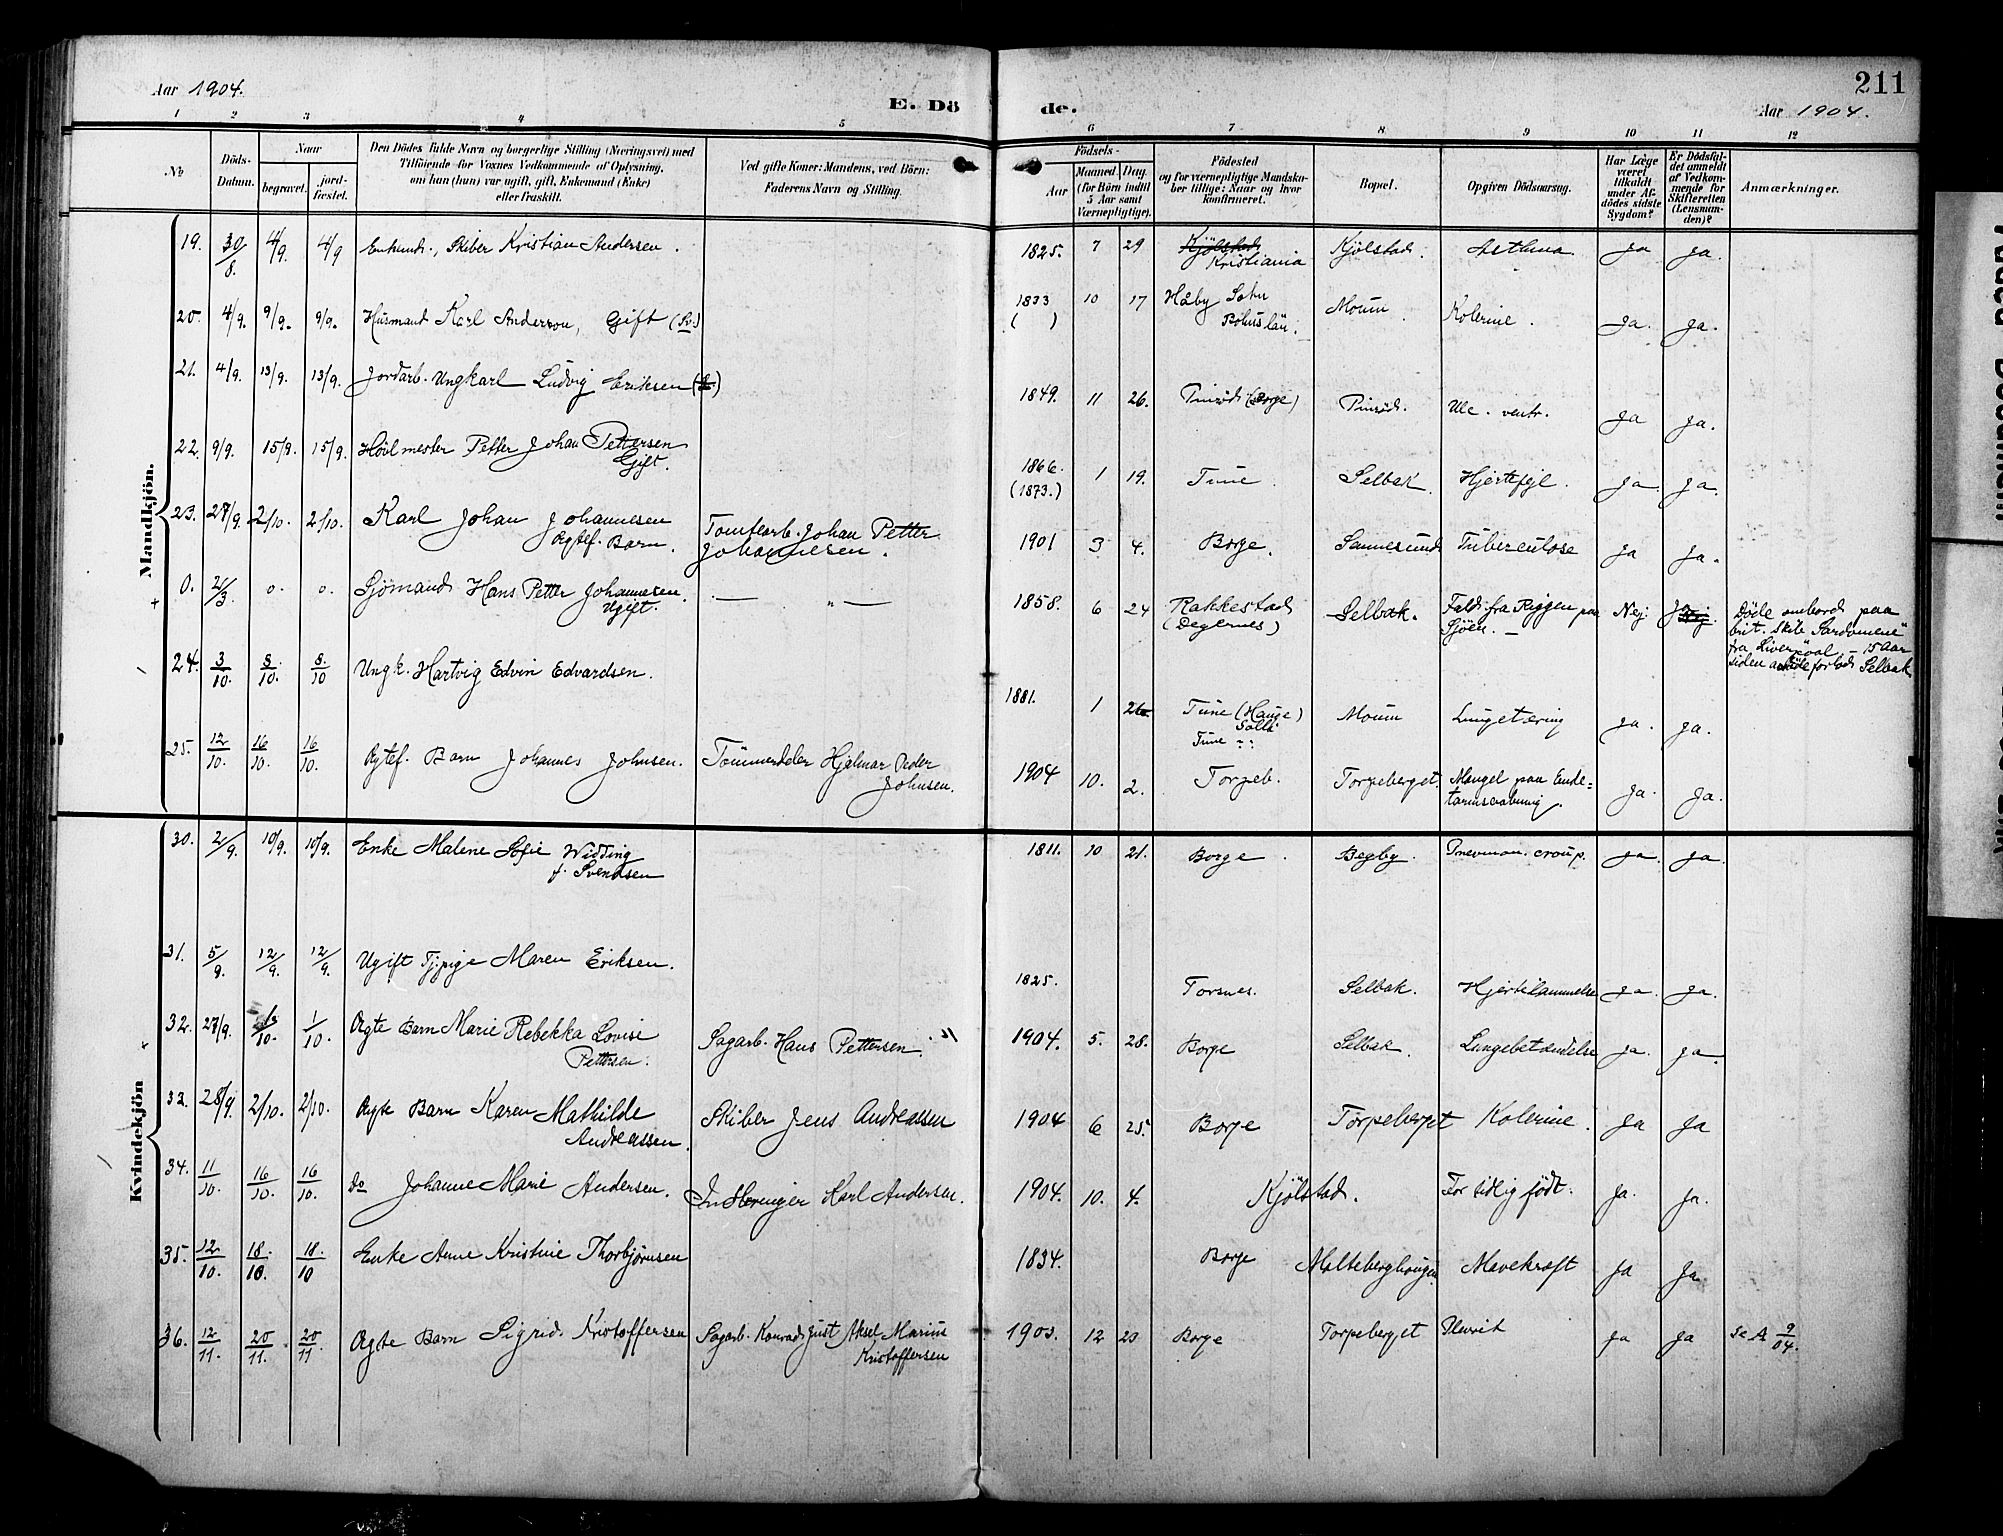 Aar 1904.
E. Dö de.
211
Aar 1904.
1 2 3 4 5 6 7 8 9 10 11 12
No
Döds-
Datum.
Naar
begravet.
jord-
fæstet.
Den Dödes fulde Navn og borgerlige Stilling (Næringsvei) med
Tilföiende for Voxnes Vedkommende af Oplysning,
om han (hun) var ugift, gift, Enkemand (Enke)
eller fraskilt.
Ved gifte Koner: Mandens, ved Börn:
Faderens Navn og Stilling.
Födsels-
Aar
Maaned. Dag.
(for Börn indtil
5 Aar samt
Værnepligtige).
Födested
og for værnepligtige Mandska-
ber tillige: Naar og hvor
konfirmeret.
Bopæl.
Opgiven Dödsaarsag.
Har Læge
været
tilkaldt
under Af-
dödes sidste
Sygdom?
Er Dödsfal-
det anmeldt
af Vedkom-
mende for
Skifteretten
(Lensman-
den)?
Anmærkninger.
Mandkjön.
19. 30/8. 4/9. 4/9 Enkemd., Skiber Kristian Andersen. 1825. 7 29 Kjölstad Kjölstad. Asthma. Ja Ja.
Kristiania
20. 4/9. 9/9. 9/9. Husmand Karl Andersson, Gift (Sv.) 1833 10 17 Håby Sokn Moum Kolerine. Ja. Ja.
( ) Bohuslän.
21. 4/9. 13/9. 13/9. Jordarb. Ungkarl Ludvig Eriksen 1849. 11 26. (Borge) Ulc. ventr. Ja Ja.
22. 9/9. 15/9. 15/9. Hövlmester Petter Johan Pettersen 1866. 1 19. Tune. Selbak. Hjertefejl. Ja. Ja.
Gift. (1873.)
23. 27/9. 2/10. 2/10. Karl Johan Johannesen Tomtearb. Johan Petter 1901 3 4. Borge. Sannesund Tuberculose Ja Ja.
Ægtef. Barn. Johannesen.
0. 2/3. 0. 0. Sjömand Hans Petter Johannesen. — " — 1858. 6 24 Rakkestad Selbak. Faldt fra Riggen paa Nej Döde ombord paa
Ugift. (Degernes) Sjöen. — brit. Skib
fra Liverpool. — 15 Aar
siden afdöde forlod Selbak
24. 3/10. 8/10. 8/10 Ungk. Hartvig Edvin Edvardsen. 1881. 1 Tune (Hauge) Moum Lungetæring Ja. Ja.
Tune
25. 12/10. 16/10. 16/10. Ægtef. Barn Johannes Johnsen. Tömmerdeler Hjalmar Peder 1904 10. 2. Torpeb. Torpeberget. Mangel paa Ende= Ja. Ja.
Johnsen. tarmsaabning.
Kvindekjön
30. 2/9. 10/9. 10/9. Enke Malene Sofie Widding 1811. 10 21. Borge. Begby. Pnevmon. croup. Ja. Ja.
f. Svendsen
31. 5/9. 12/9. 12/9. Ugift Tj.pige Maren Eriksen. 1825. Torsnes. Selbak. Hjertelammelse Ja. Ja.
32. 27/9. 1/10. 1/10. Ægte Barn Marie Rebekka Lovise Sagarb. Hans Pettersen. 1904. 5. 28. Borge Selbak. Lungebetændelse Ja. Ja.
Pettersen.
33. 28/9. 2/10. 2/10. Ægte Barn Karen Mathilde Skiber Jens Andreassen 1904 6 25. Borge Torpeberget Kolerine. Ja Ja
Andreassen.
34. 11/10. 16/10. 16/10. Do Johanne Marie Andersen. Karl Andersen. 1904. 10. 4. Kjölstad. For tidlig födt. Ja. Ja.
35. 12/10. 18/10. 18/10 Enke Anne Kristine Thorbjörnsen 1834. Borge Malteberghaugen Mavekræft Ja Ja.
36. 12/11. 20/11. 20/11 Ægte Barn Sigrid Kristoffersen Sagarb. Konrad Just Aksel Marius 1903. 12 20 Borge Torpeberget Plevrit Ja Ja Se A 9/04.
Kristoffersen